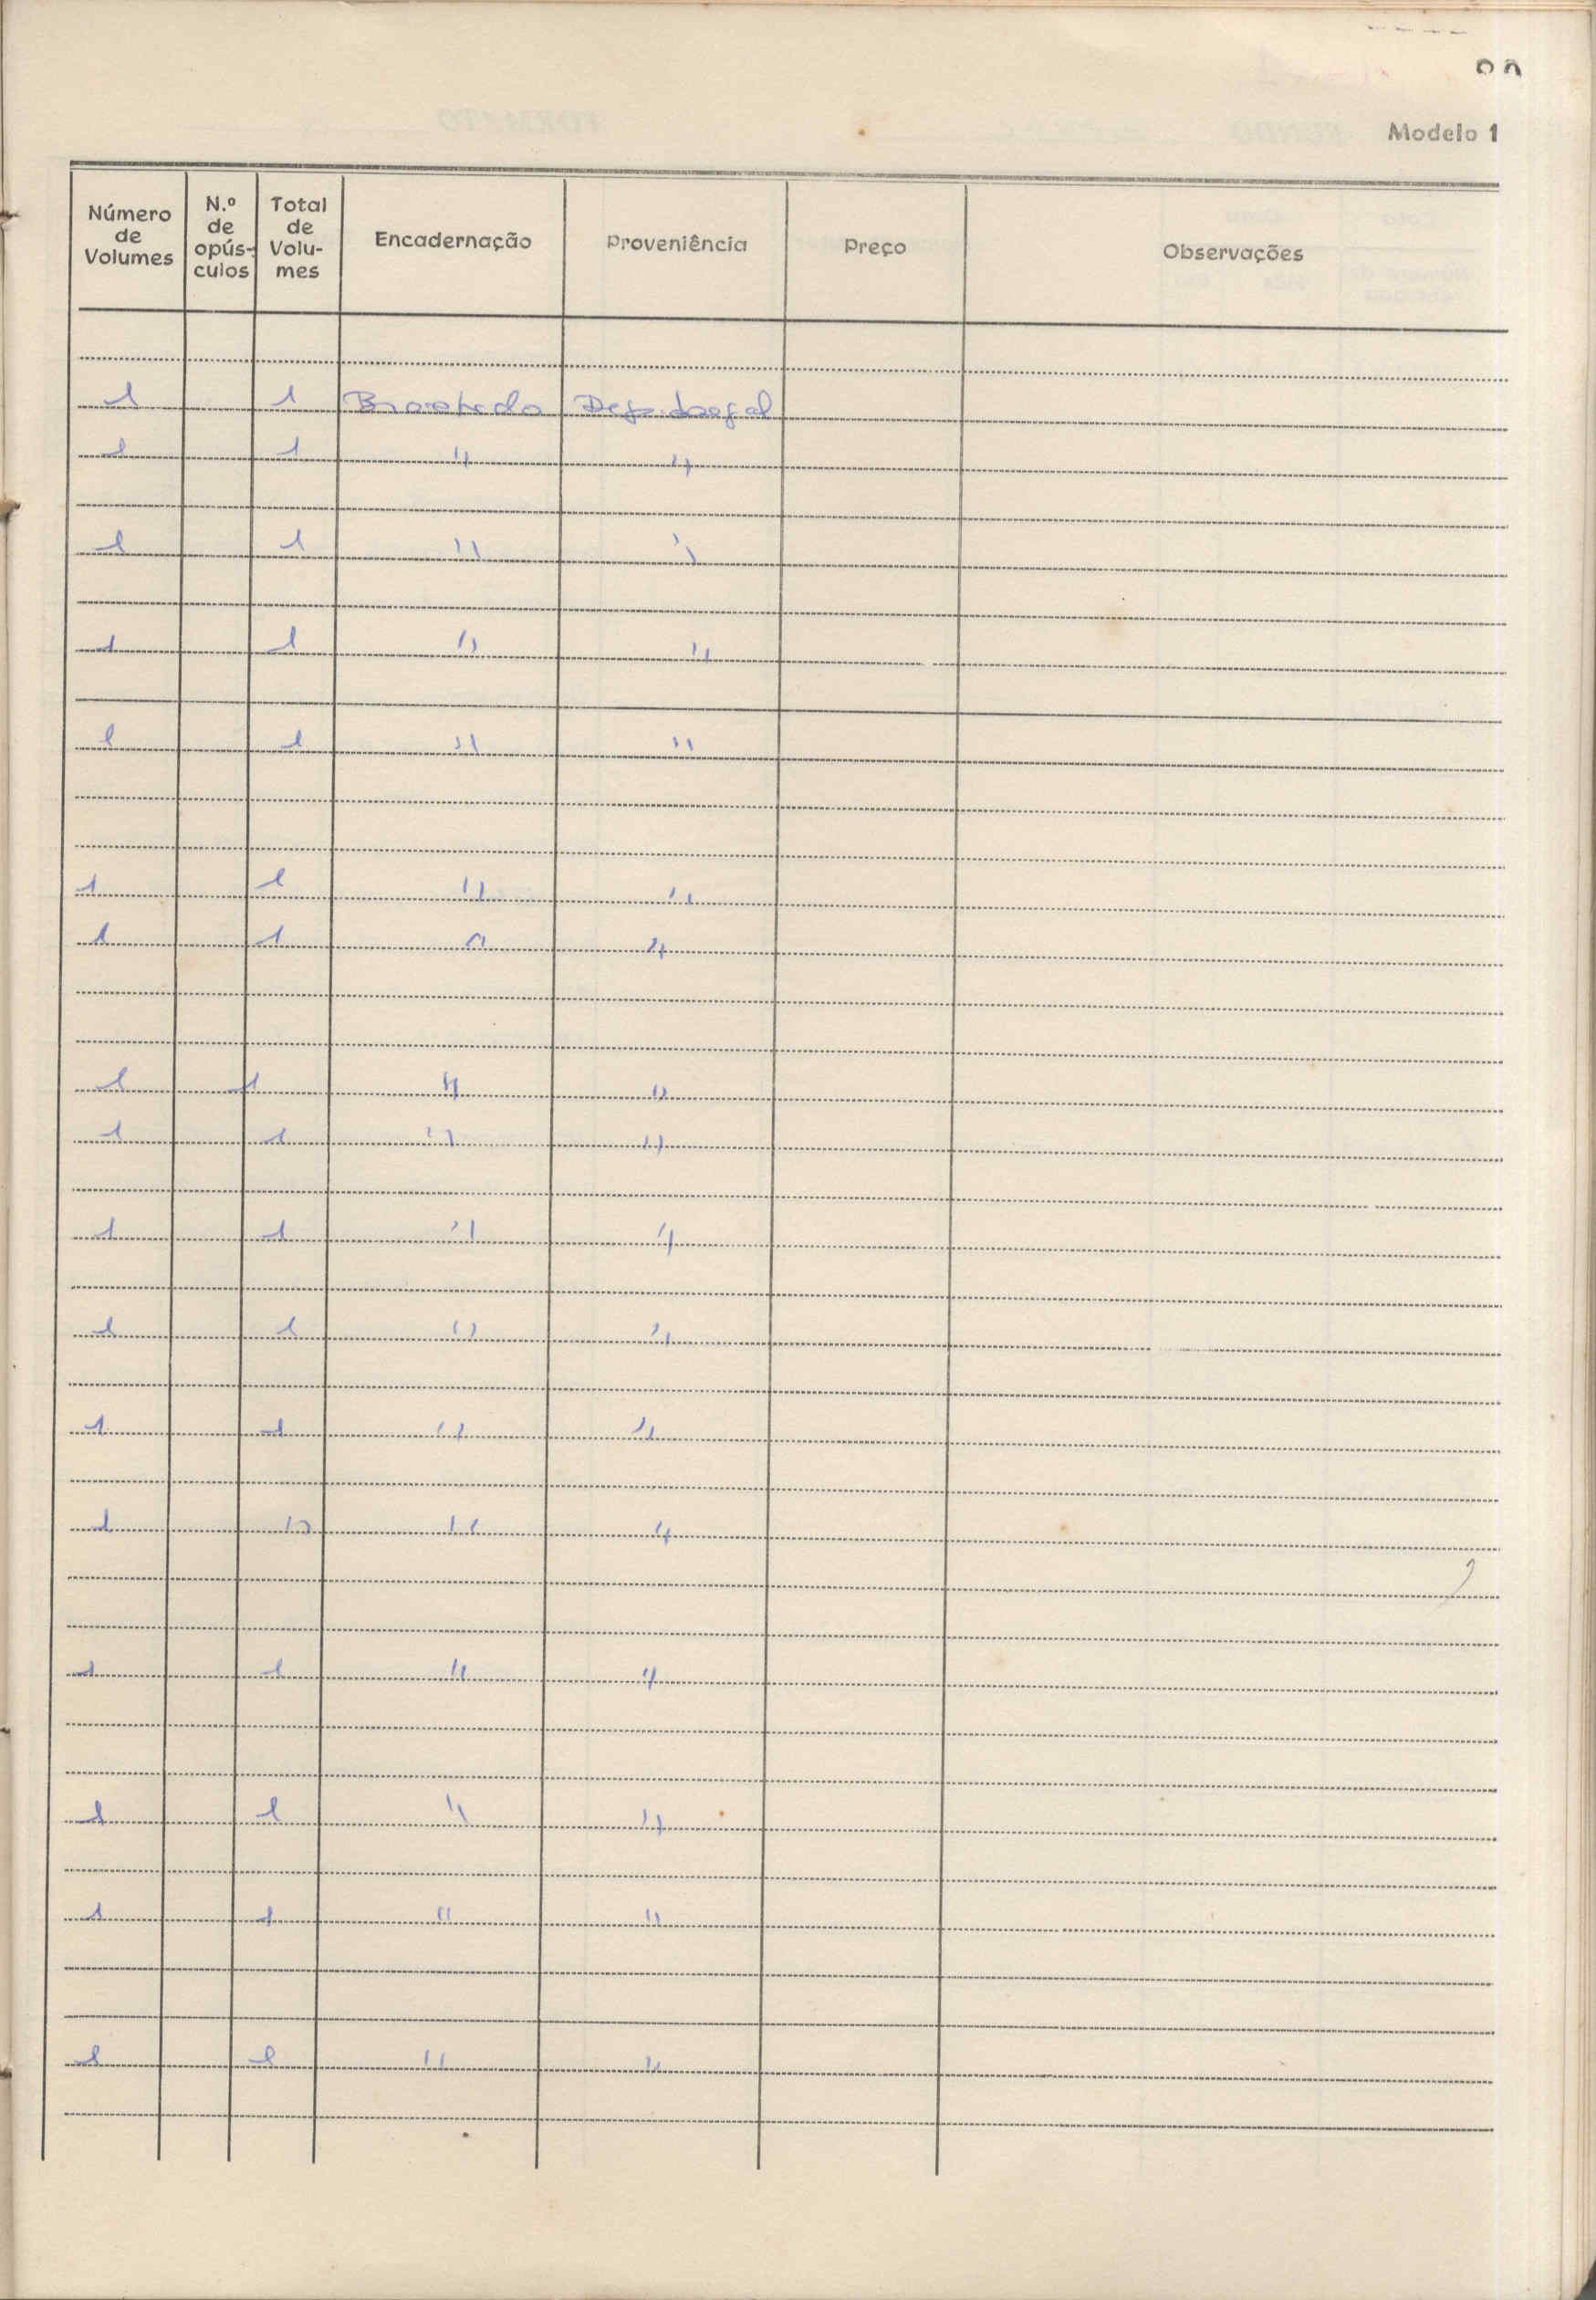 Modelo 1
Número de Volumes N.º de opús-culos Total de Volu-mes Encadernação Proveniência Preço Observações
1 1 Brochado Dep. Legal
1 1 " "
1 1 " "
1 1 " "
1 1 " "
1 1 " "
1 1 " "
1 1 " "
1 1 " "
1 1 " "
1 1 " "
1 1 " "
1 " " "
1 1 " "
1 1 " "
1 1 " "
1 1 " "